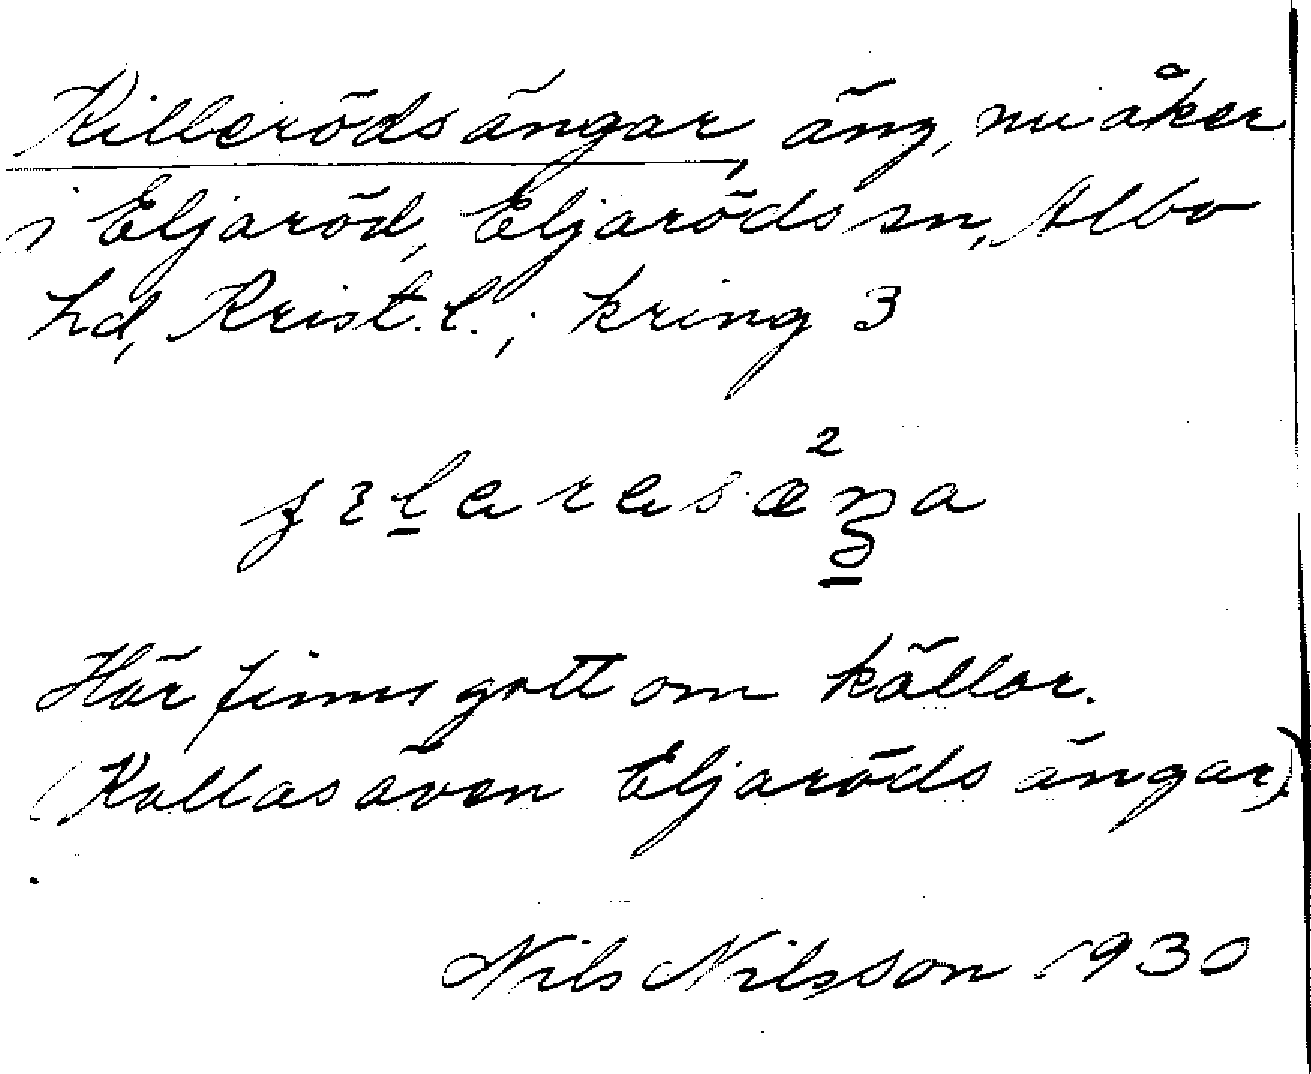 Killerödsängar, äng, nu åker
i Eljaröd, Eljaröds sn, Albo
hd, Krist. l.; kring 3
Här finns gott om källor.
(Kallas även Eljaröds ängar).
Nils Nilsson 1930